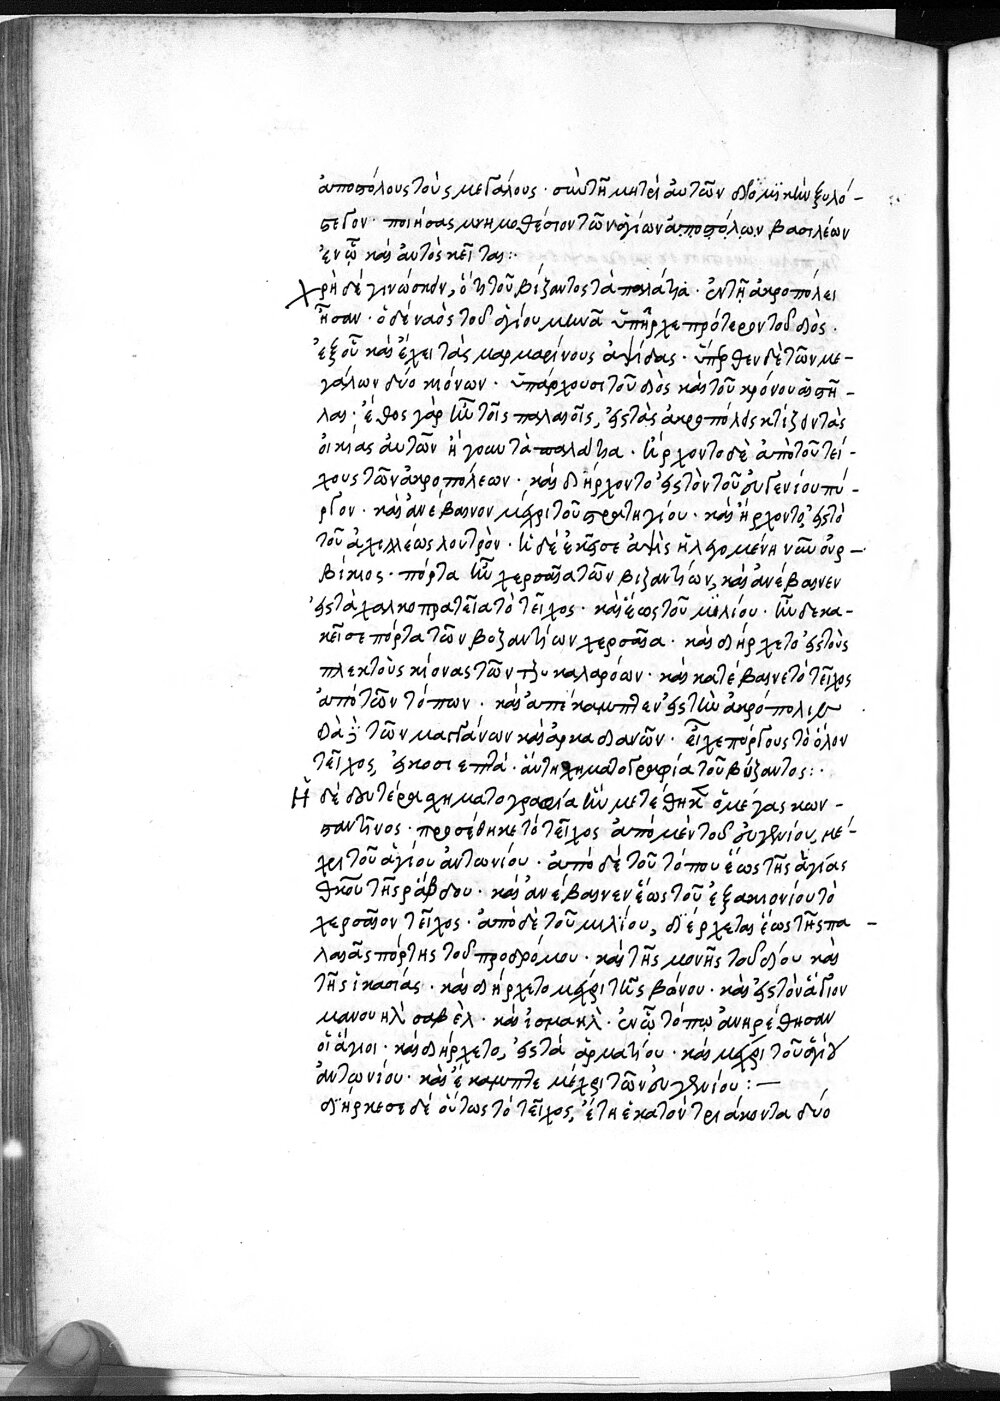 ἀποστόλους τοὺς μεγάλους · σὺν τῆ μητρὶ αὐτῶν δρομικὴν ξυλό-
στεγον · ποιήσας μνημοθέσιον τῶν ἁγίων ἀποστόλων βασιλέων
ἐν ᾧ καὶ αὐτὸς κεῖται :·
Χρὴ δὲ γινώσκειν, ὅτι τοῦ βύζαντος τὰ παλάτια · ἐν τῆ ἀκροπόλει
ἦσαν · ὁ δὲ ναὸς τοῦ ἁγίου μηνᾶ ὑπῆρχε πρότερον τοῦ διὸς ·
ἐξ οὗ καὶ ἔχει τὰς μαρμαρίνους ἀψίδας · ὕπερθεν δὲ τῶν με-
γάλων δύο κιόνων · ὑπάρχουσι τοῦ διὸς καὶ τοῦ κρόνου αἱ στῆ-
λαι · ἔθος γὰρ ἦν τοῖς παλαιοῖς, εἰς τὰς ἀκροπόλεις κτίζειν τὰς
οἰκίας αὐτῶν ἤγουν τὰ παλάτια · ἤρχοντο δὲ ἀπὸ τοῦ τεί-
χους τῶν ἀκροπόλεων · καὶ διήρχοντο εἰς τὸν τοῦ εὐγενίου πύ-
ργον · καὶ ἀνέβαινον μέχρι τοῦ στρατηγίου · καὶ ἤρχοντο εἰς τὸ
τοῦ ἀχιλλέως λουτρόν · ἡ δὲ ἐκεῖσε ἀψὶς ἡ λεγομένη νῦν οὐρ-
βίκιος · πόρτα ἦν χερσαῖα τῶν βυζαντίων, καὶ ἀνέβαινεν
εἰς τὰ χαλκοπρατεῖα τὸ τεῖχος · καὶ ἕως τοῦ μιλίου · ἦν δὲ κα-
κεῖσε πόρτα τῶν βυζαντίων χερσαῖα · καὶ διήρχετο εἰς τοὺς
πλεκτοὺς κίονας τῶν τζυκαλαρείων · καὶ κατέβαινε τὸ τεῖχος
ἀπὸ τῶν τόπων · καὶ ἀπέκαμπτεν εἰς τὴν ἀκρόπολιν
διὰ τῶν μαγγάνων καὶ ἀρκαδιανῶν · εἶχε πύργους τὸ ὅλον
τεῖχος, εἴκοσι ἑπτά · αὕτη σχηματογραφία τοῦ βύζαντος :·
Ἡ δὲ δευτέρα σχηματογραφία ἣν μετέθηκεν ὁ μέγας κων-
σταντῖνος · προσέθηκε τὸ τεῖχος ἀπὸ μὲν τοῦ εὐγενίου, μέ-
χρι τοῦ ἁγίου ἀντωνίου · ἀπὸ δὲ τοῦ τόπου ἕως τῆς ἁγίας
θεοτόκου τῆς ῥάβδου · καὶ ἀνέβαινεν ἕως τοῦ ἐξακιονίου τὸ
χερσαῖον τεῖχος · ἀπὸ δὲ τοῦ μιλίου, διέρχεται ἕως τῆς πα-
λαιᾶς πόρτης τοῦ προδρόμου · καὶ τῆς μονῆς τοῦ δίου καὶ
τῆς ἰκασίας · καὶ διήρχετο μέχρι τῆς βώνου · καὶ εἰς τὸν ἅγιον
μανουὴλ σαβὲλ · καὶ ἰσμαὴλ · ἐν ᾧ τόπῳ ἀνηρέθησαν
οἱ ἅγιοι · καὶ διήρχετο, εἰς τὰ ἁρματίου · καὶ μέχρι τοῦ ἁγίου
ἀντωνίου · καὶ ἔκαμπτε μέχρι τῶν εὐγενίου :—
διήρκεσε δὲ οὕτως τὸ τεῖχος, ἔτη ἑκατὸν τριάκοντα δύο